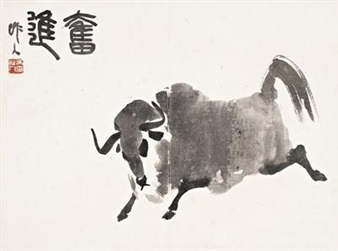 奮進
作人